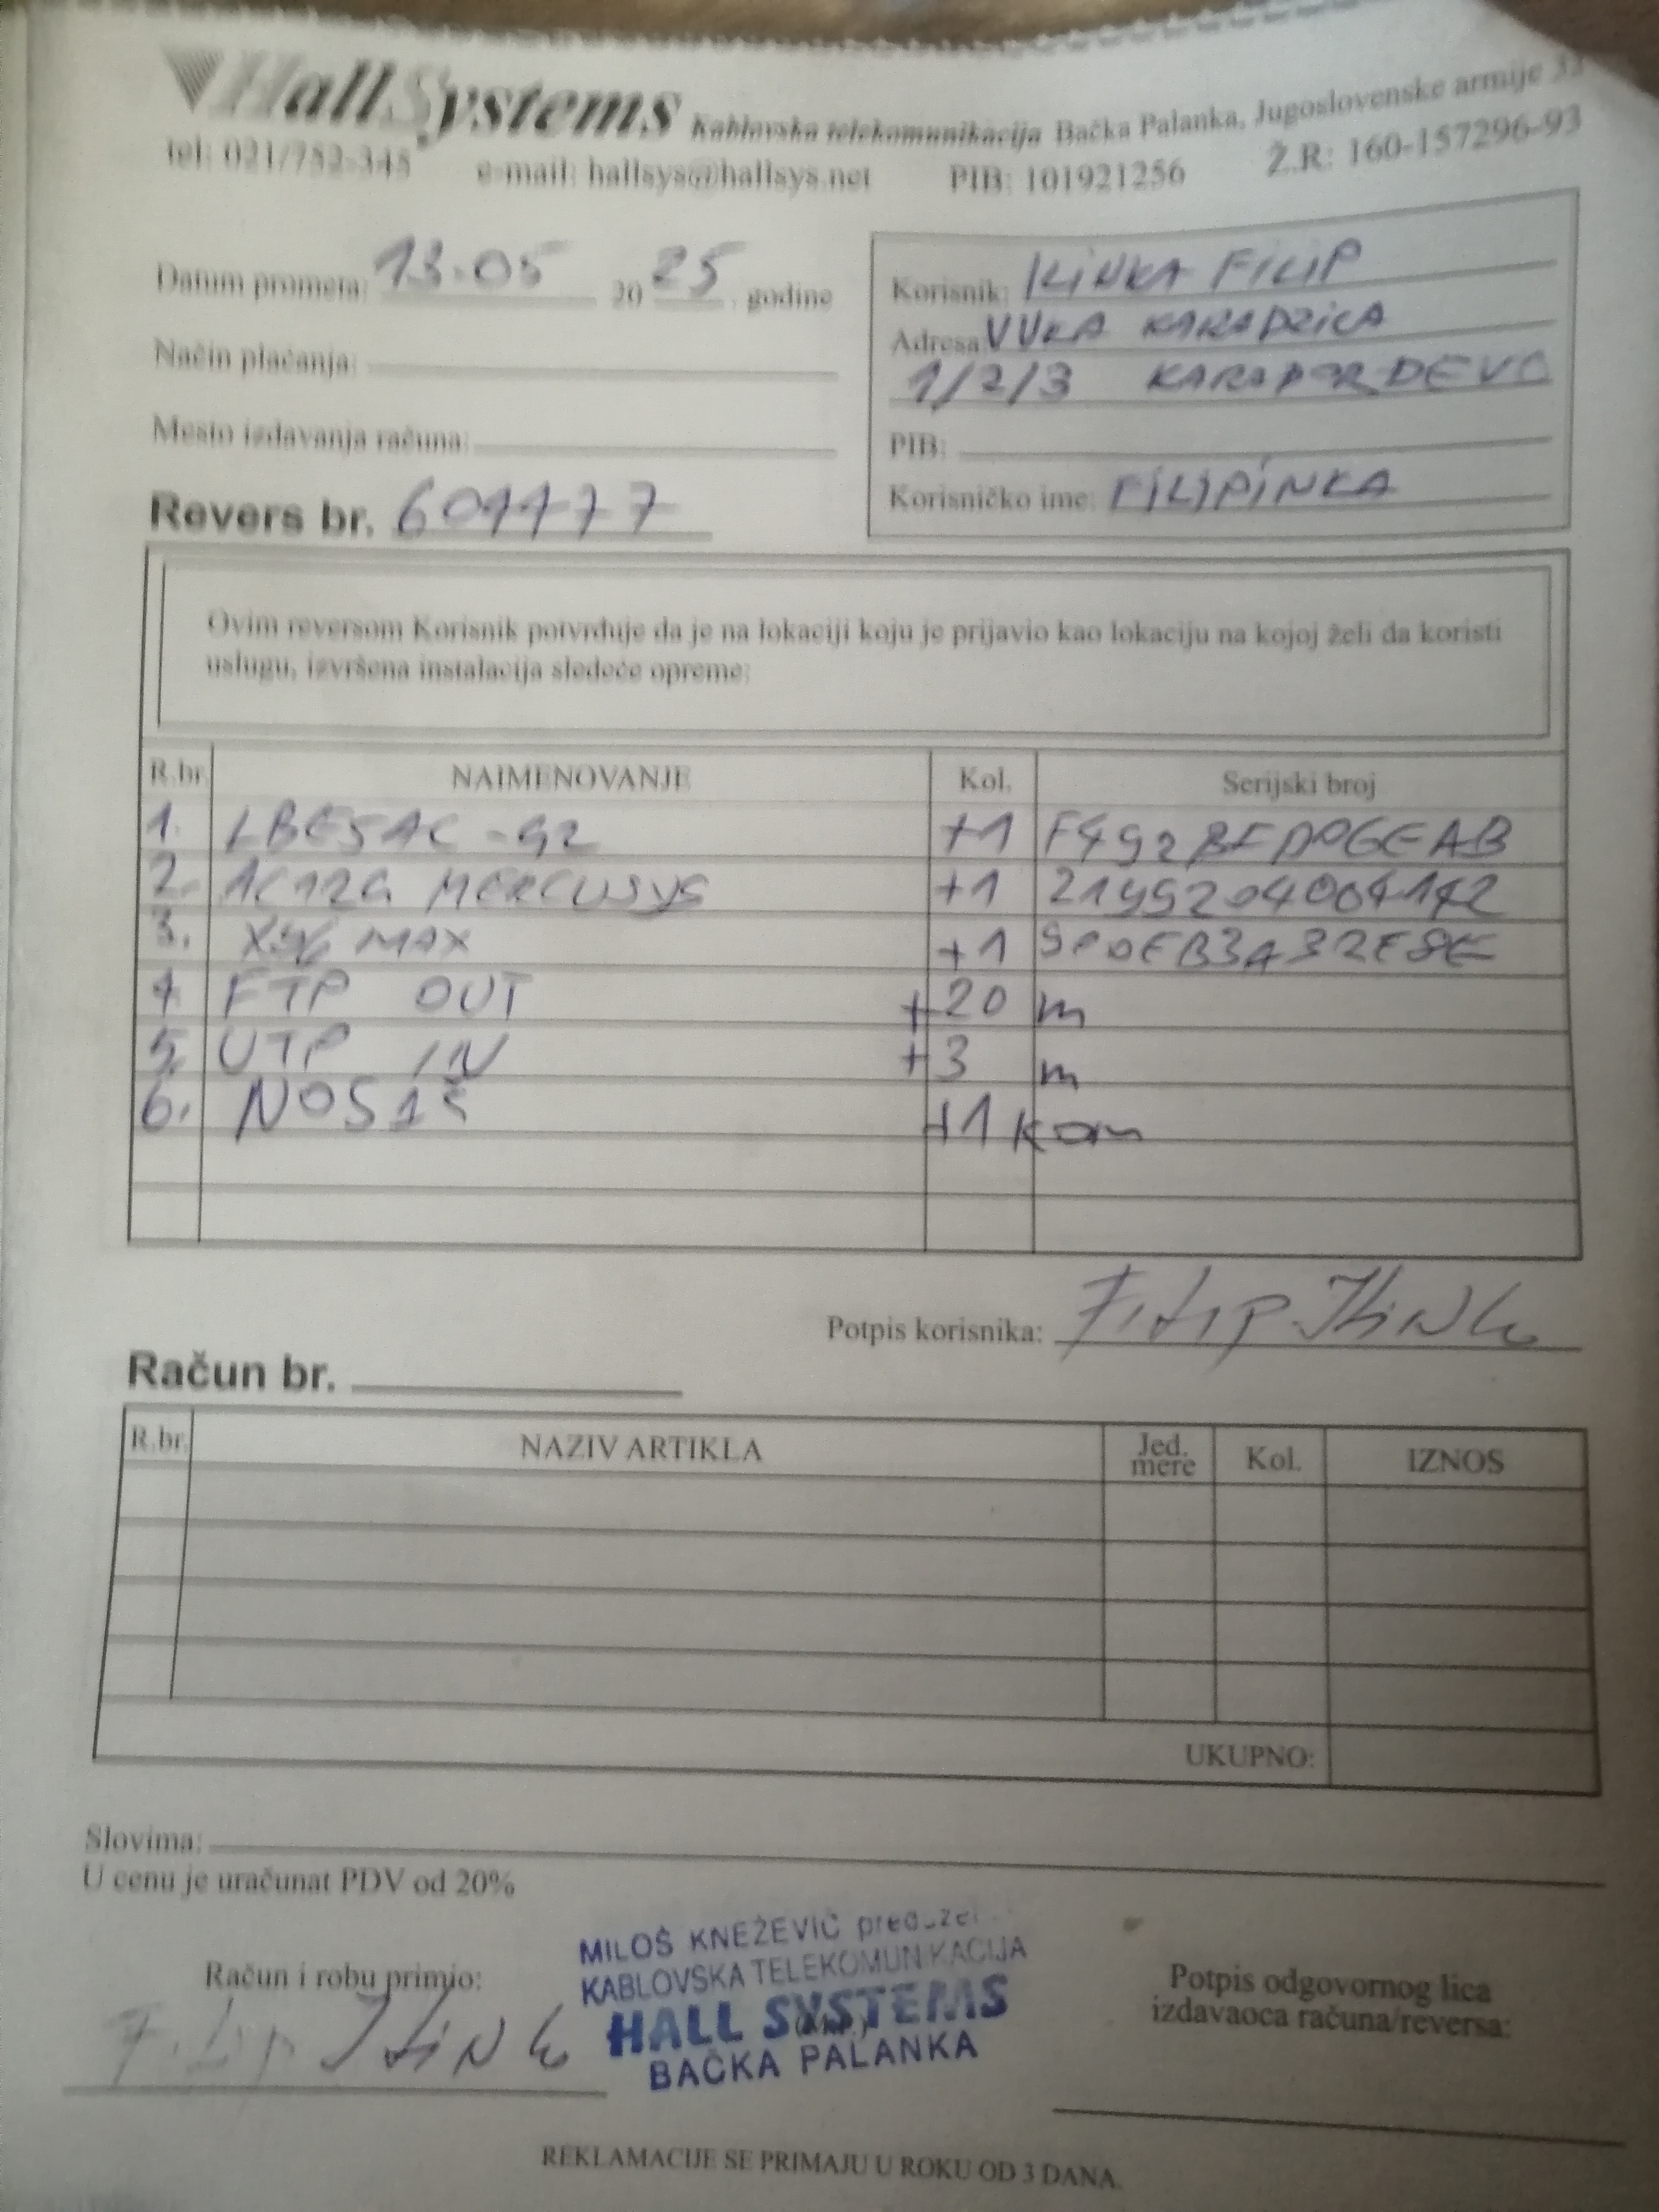 HallSystems Kablovska telekomunikacija Bačka Palanka, Jugoslovenske armije
tel: 021/752-345 e-mail: hallsys@hallsys.net PIB: 101921256 Ž.R: 160-157296-93
Datum prometa: 13.05 20 25 godine
Način plaćanja:
Mesto izdavanja računa:
Revers br. 601177
Korisnik: ILINKA FILIP
Adresa: VUKA KARADZICA
1/2/3
PIB:
Korisničko ime: FILIPINKA
Ovim reversom Korisnik potvrđuje da je na lokaciji koju je prijavio kao lokaciju na kojoj želi da koristi
uslugu, izvršena instalacija sledeće opreme:
R.br. NAIMENOVANJE Kol. Serijski broj
1. LBE5AC-G2 +1
2. AC12G MERCUSYS +1
3. X96 MAX +1
4 FTP OUT +20 m
5. UTP IN +3 m
6. +1 kom
Potpis korisnika: Filip Ilinka
Račun br.
R.br. NAZIV ARTIKLA Jed. mere Kol. IZNOS
UKUPNO:
Slovima:
U cenu je uračunat PDV od 20%
Račun i robu primio:
Filip Ilinka
MILOŠ KNEŽEVIĆ
KABLOVSKA TELEKOMUNIKACIJA
HALL SYSTEMS
BAČKA PALANKA
Potpis odgovornog lica
izdavaoca računa/reversa:
REKLAMACIJE SE PRIMAJU U ROKU OD 3 DANA.